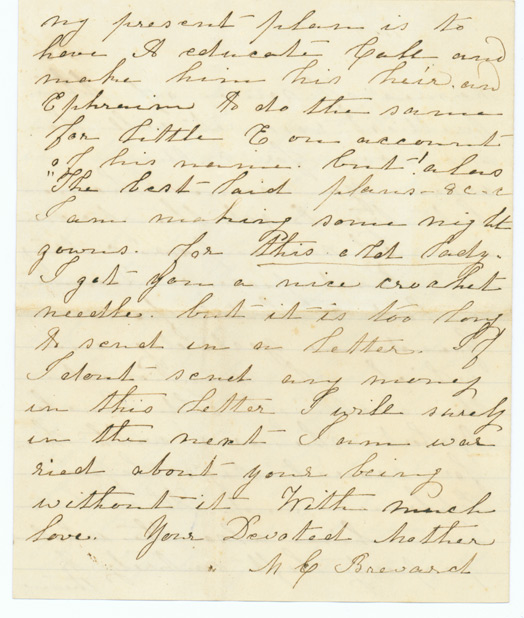 my present plan is to
have & educate Call and
make him his heir. and
Ephraim to do the same
for little E on account
of his name. but! alas
"The best laid plans - &c - c
I am making some night
gowns. for this old lady.
I got you a nice crochet
needle. but it is too long
to send in a letter. If
I dont send any money
in this letter I will surely
in the next I am wor
ried about your being
without it With much
love. Your Devoted Mother
M E Brevard